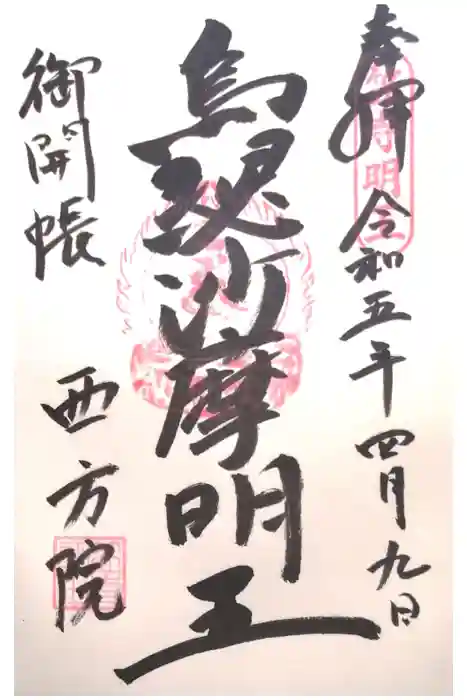 奉拝 令和五年四月九日
烏瑟沙摩明王
御開帳
西方院